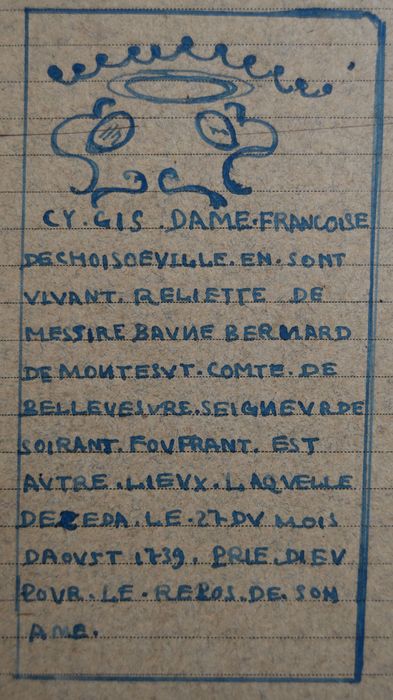 CY. GIS. DAME. FRANCOISE
DE CHOISOEVILLE. EN. SONT
VIVANT. RELIETTE DE
MESSIRE BAVNE BERNARD
DE MONTESVT. COMTE. DE
BELLEVESVRE. SEIGNEVR DE
SOIRANT. FOVFRANT. EST
AVTRE. LIEVX. LAQVELLE
DECEDA. LE. 27 DV MOIS
DAOVST 1739. PRIE. DIEV
POVR. LE. REPOS. DE. SON
AME.